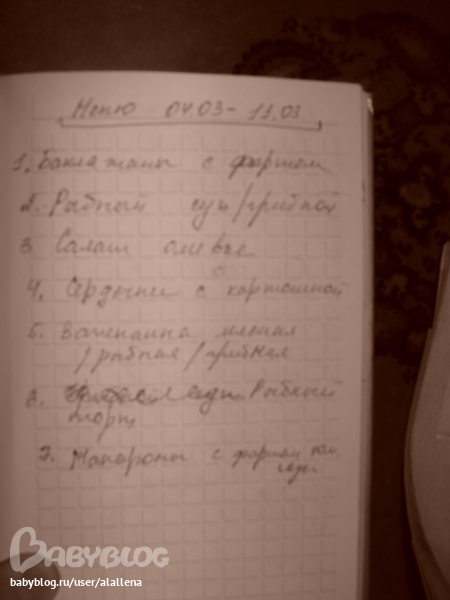 Меню 04.03 - 11.03
1. Баклажаны с фаршем
2. Рыбный суп/грибной
3 Салат оливье
4. Сердечки с картошкой
5. Запеканка мясная
/рыбная/грибная
6. Рыбный
торт
7. Макароны с фаршем
BABYBLOG
babyblog.ru/user/alallena